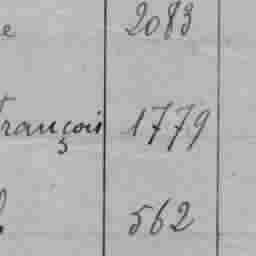 e 2083
François 1779
562